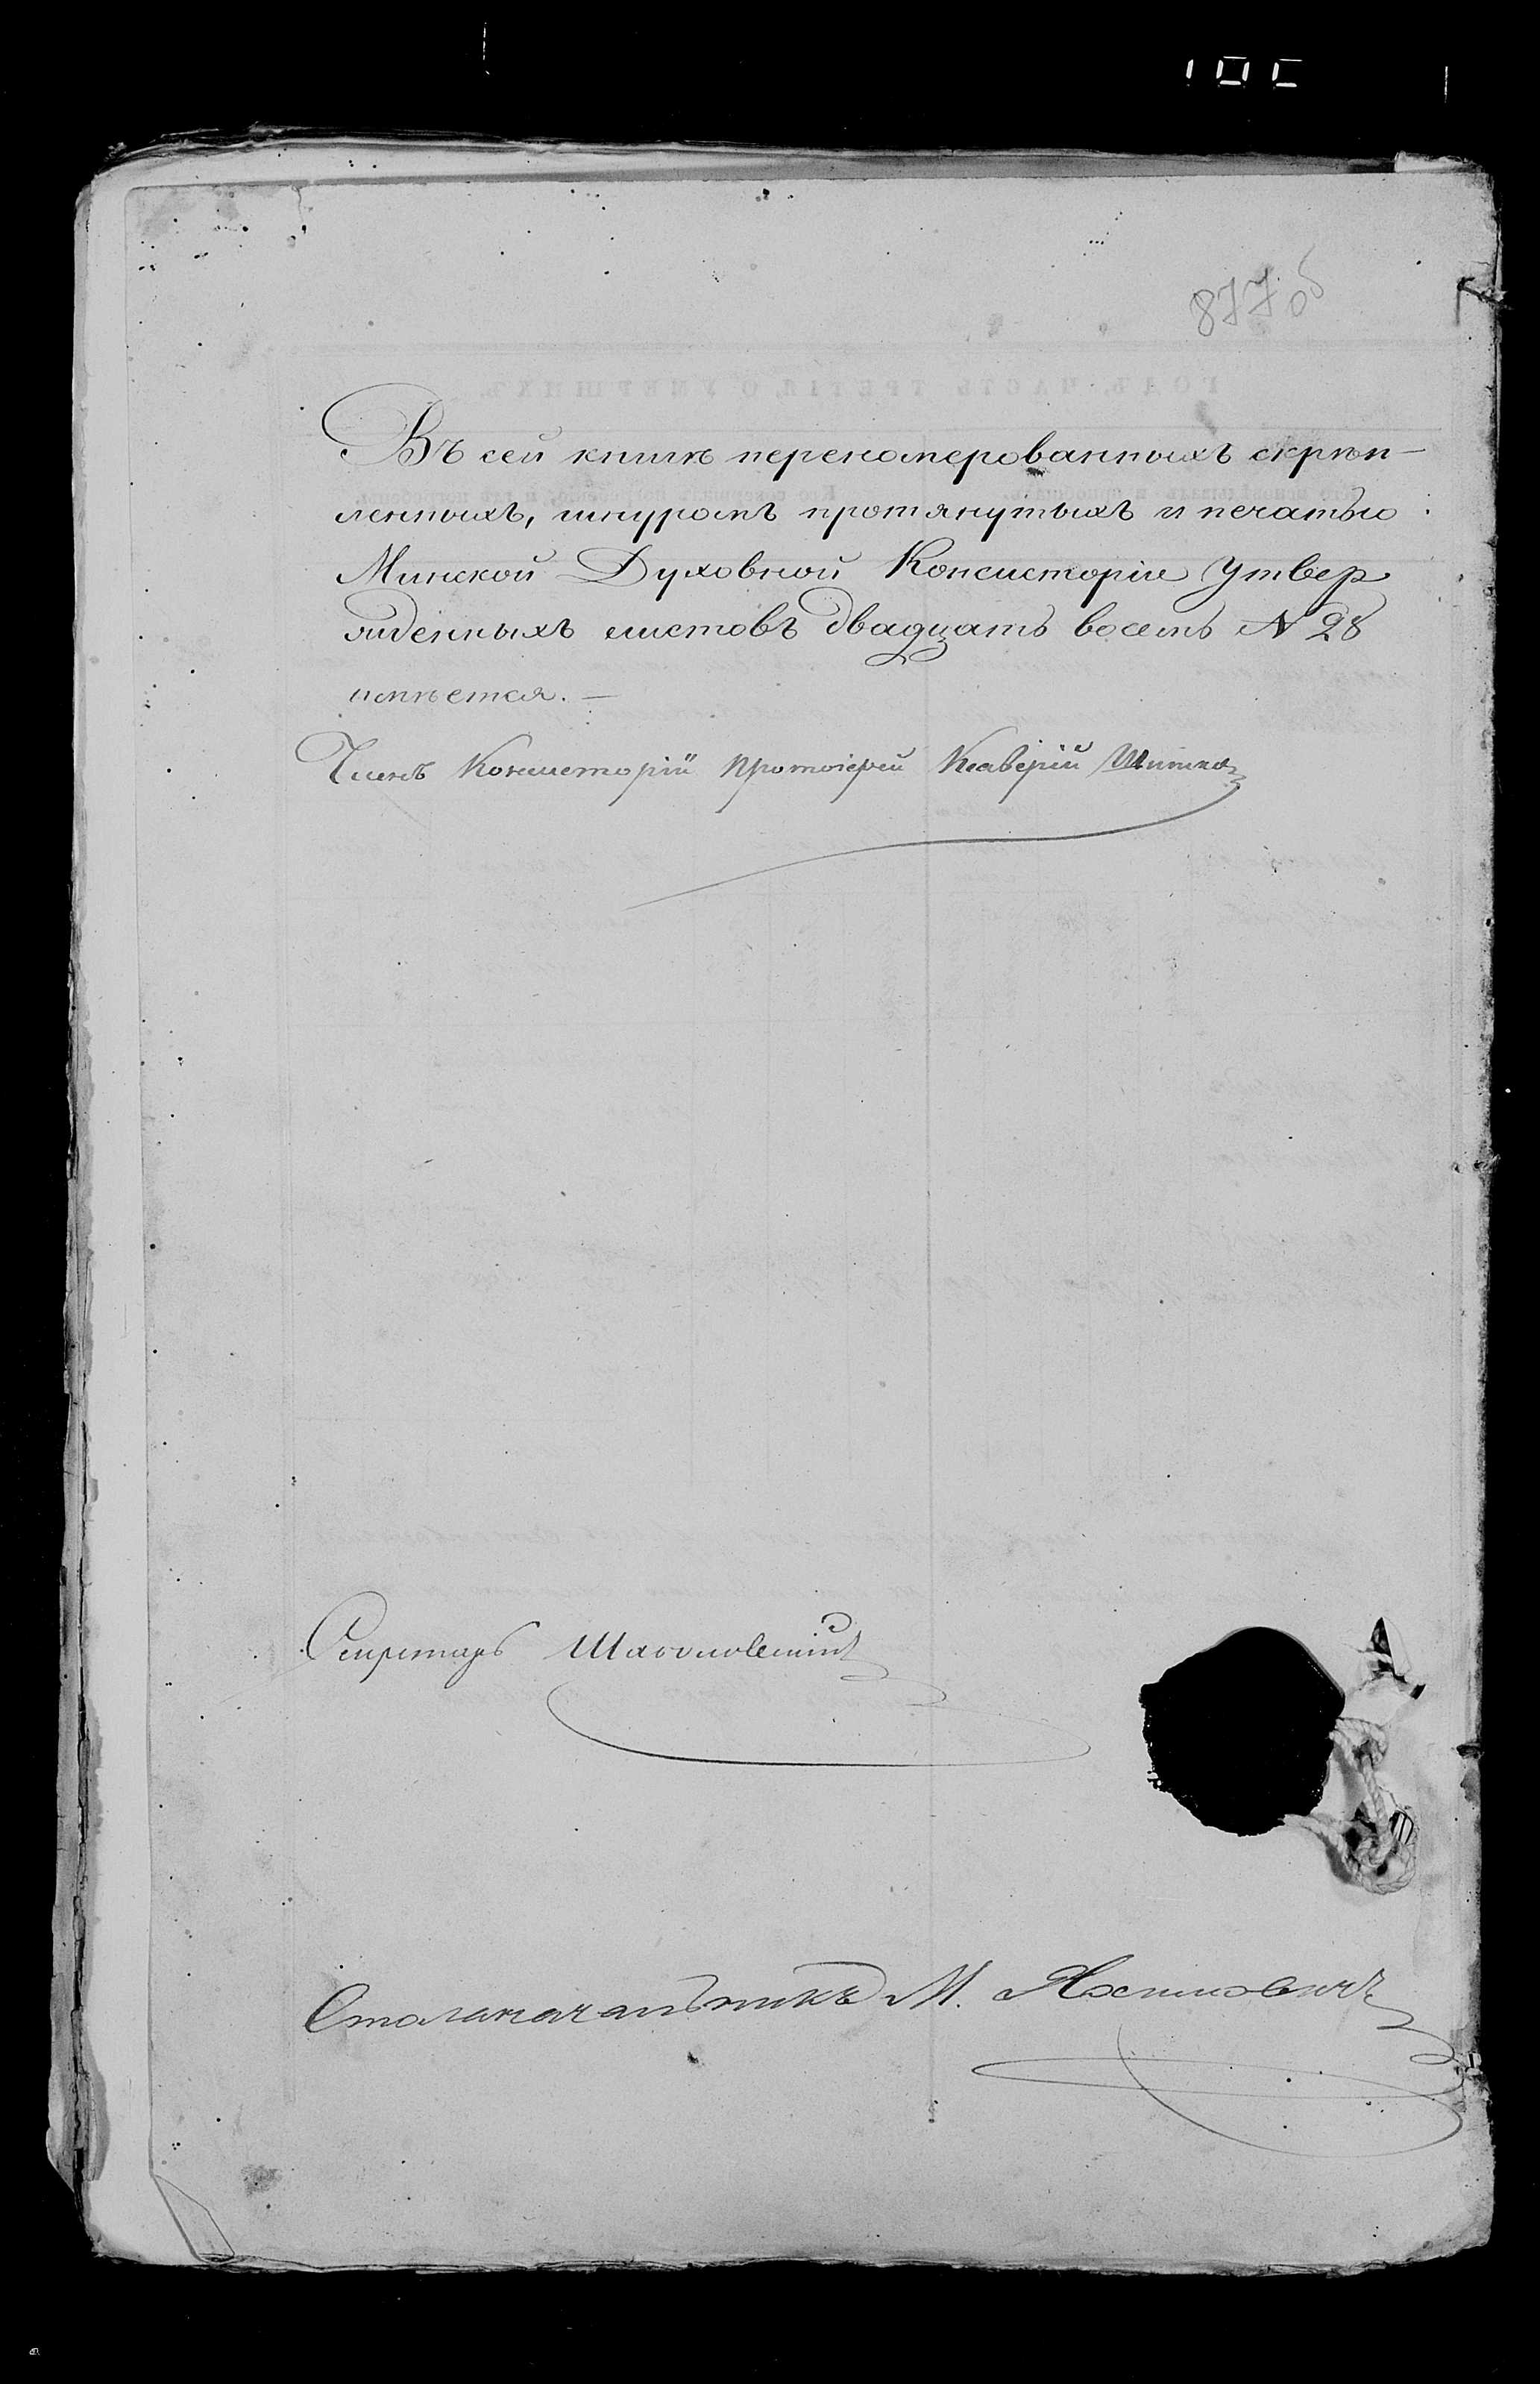 877 об
Въ сей книгѣ переномерованныхъ скрѣп-
ленныхъ, шнуромъ протянутыхъ и печатью
Минской Духовной Консисторіи утвер
жденныхъ листовъ двадцать восемь N 28
имѣется. —
Членъ Консисторіи Протоіерей
Секретарь
Столоначальникъ М.